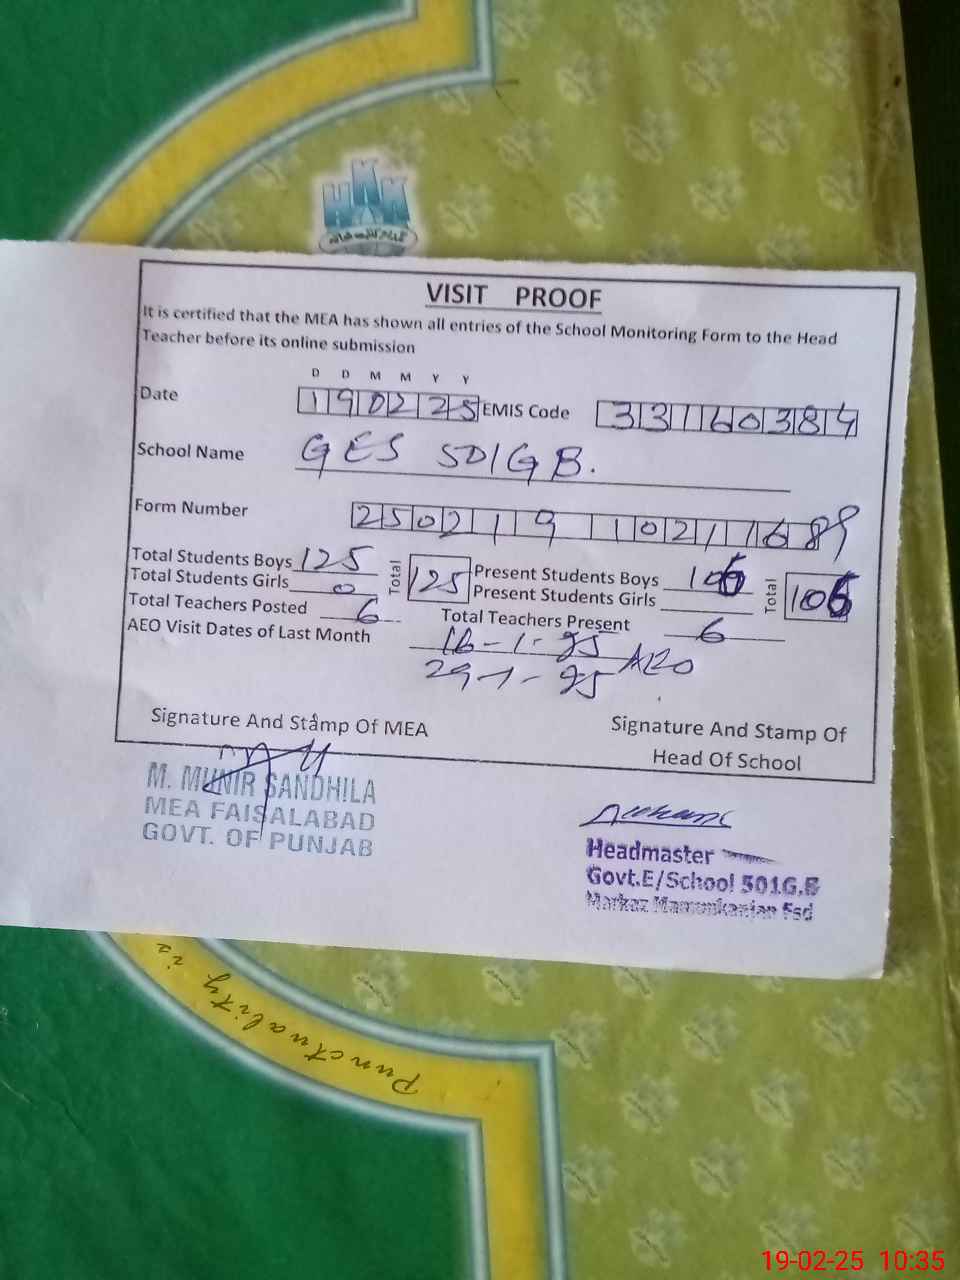 VISIT PROOF
It is certified that the MEA has shown all entries of the School Monitoring Form to the Head
Teacher before its online submission
D D M M Y Y
Date 190225 EMIS Code 33160384
School Name GES 501GB.
Form Number 25021910211689
Total Students Boys 125 Total 125 Present Students Boys 106 Total 106
Total Students Girls 0 Present Students Girls
Total Teachers Posted 6 Total Teachers Present 6
AEO Visit Dates of Last Month 16-1-25 AEO
29-1-25
Signature And Stamp Of MEA Signature And Stamp Of
Head Of School
M. MUNIR SANDHILA
MEA FAISALABAD
GOVT. OF PUNJAB
Headmaster
Govt.E/School 501G.B
Markaz Mamunkanjan Fsd
Punctuality is
19-02-25 10:35